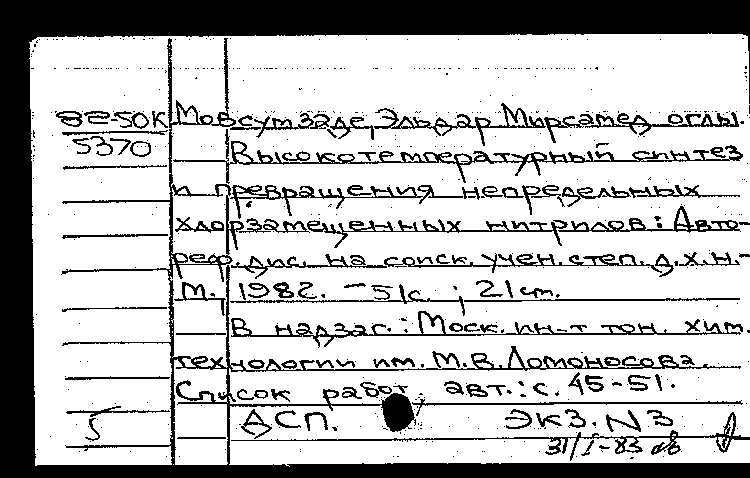 50К Мовсумзаде, Эльдар Мирсамед оглы.
5370 Высокотемпературный синтез
и превращения непредельных
хлорзамещенных нитрилов: Авто-
реф. дис. на соиск. учен. степ. д.х.н.-
М., 1982. - 51с. ; 21 cm.
В надзаг.: Моск. ин-т тон. хим.
технологии им. М.В. Ломоносова.
Список работ авт.: с. 45-51.
5 ДСП. Экз. N3
31/I-83